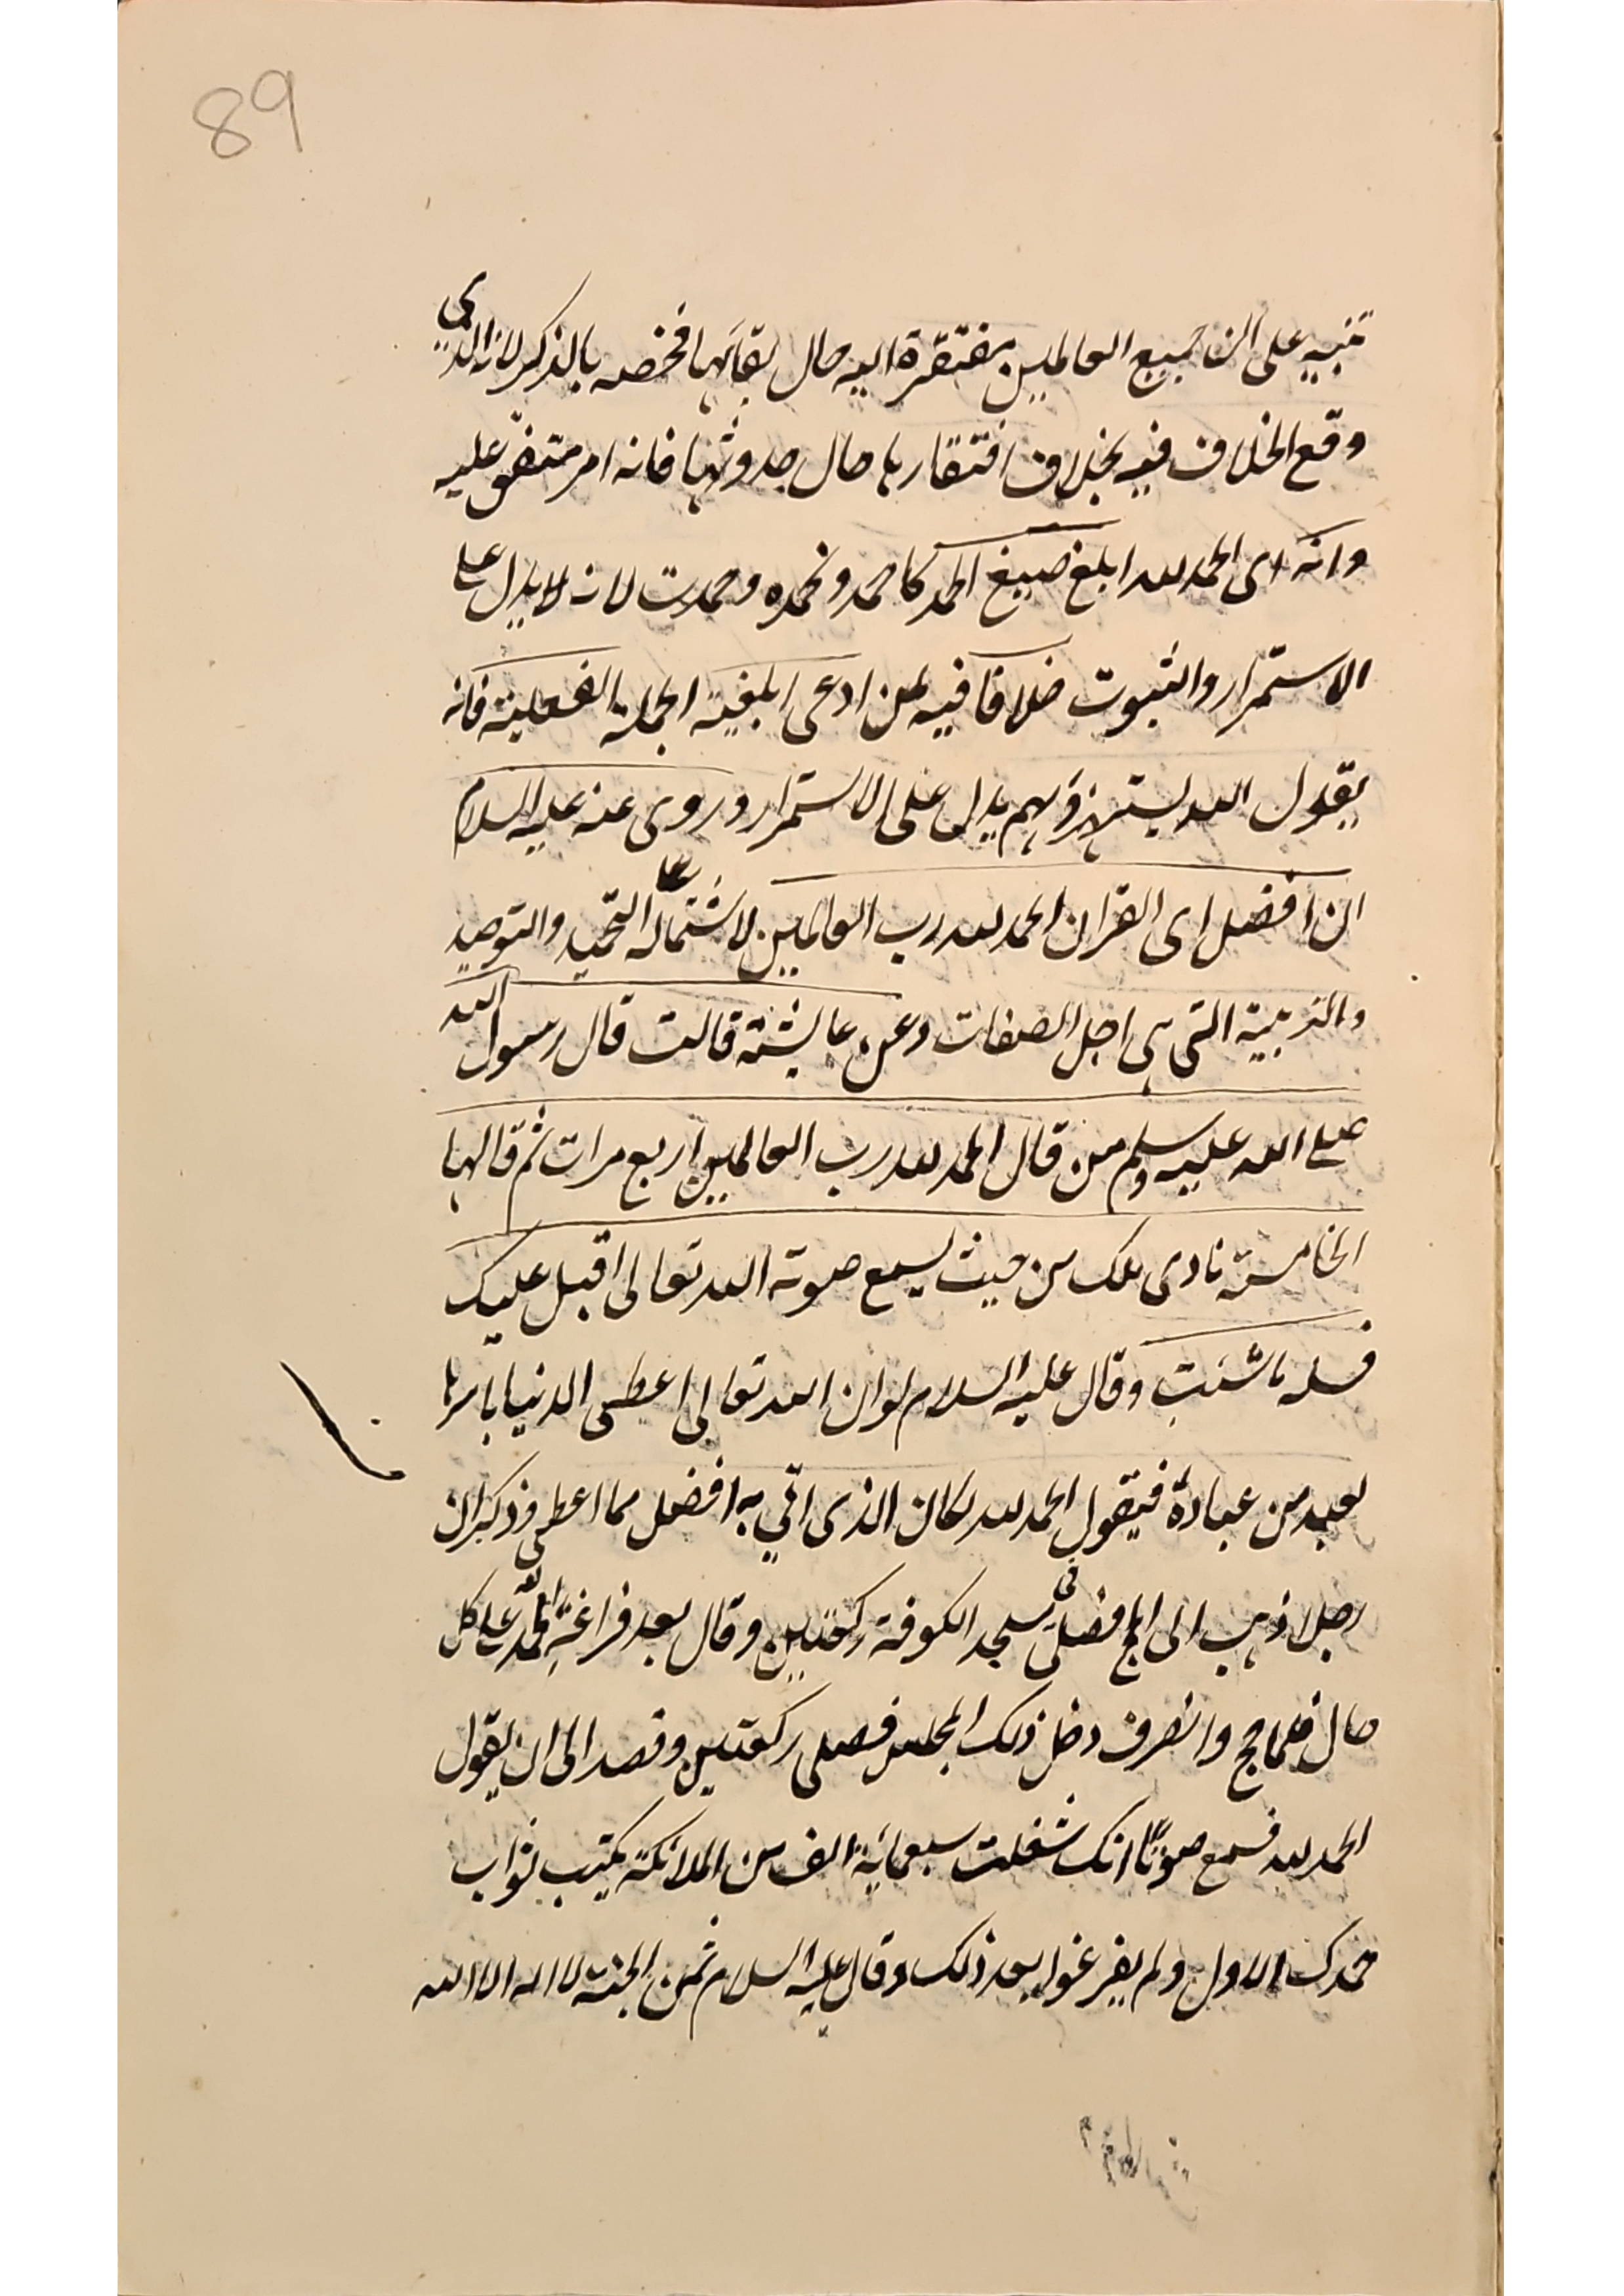 89
تنبيه على ان جميع العالمين مفتقرة اليه حال بقائها فخصه بالذكر لانه الذي
وقع الخلاف فيه بخلاف افتقارها حال حدوثها فانه امر متفق عليه
وانه اى الحمد لله ابلغ صيغ الحمد كاحمد ونحمده وحمدت لانه لا يدل على
الاستمرار والثبوت خلافا فيه لمن ادعى ابلغية الجملة الفعلية فانه
يقول الله يستهزؤ بهم يدل على الاستمرار وروى عنه عليه السلام
ان افضل اى القران الحمد لله رب العالمين لاشتماله على التحميد والتوحيد
والتربية التى هى اجل الصفات وعن عايشة قالت قال رسول الله
صلى الله عليه وسلم من قال الحمد لله رب العالمين اربع مرات ثم قالها
الخامسة نادى ملك من حيث يسمع صوته الله تعالى اقبل عليك
فسله ما شئت وقال عليه السلام لو ان الله تعالى اعطى الدنيا باسرها
لعبد من عباده فيقول الحمد لله لكان الذى اتى به افضل مما اعطى وذكر ان
رجلا ذهب الى الحج فصلى فى مسجد الكوفة ركعتين وقال بعد فراغه الحمد لله على كل
حال فلما حج وانصرف دخل ذلك المجلس فصلى ركعتين وقصد الى ان يقول
الحمد لله فسمع صوتا انك شغلت سبعمائة الف من الملائكة يكتب ثواب
حمدك الاول ولم يفرغوا بعد ذلك وقال عليه السلام ثمن الجنة لا اله الا الله